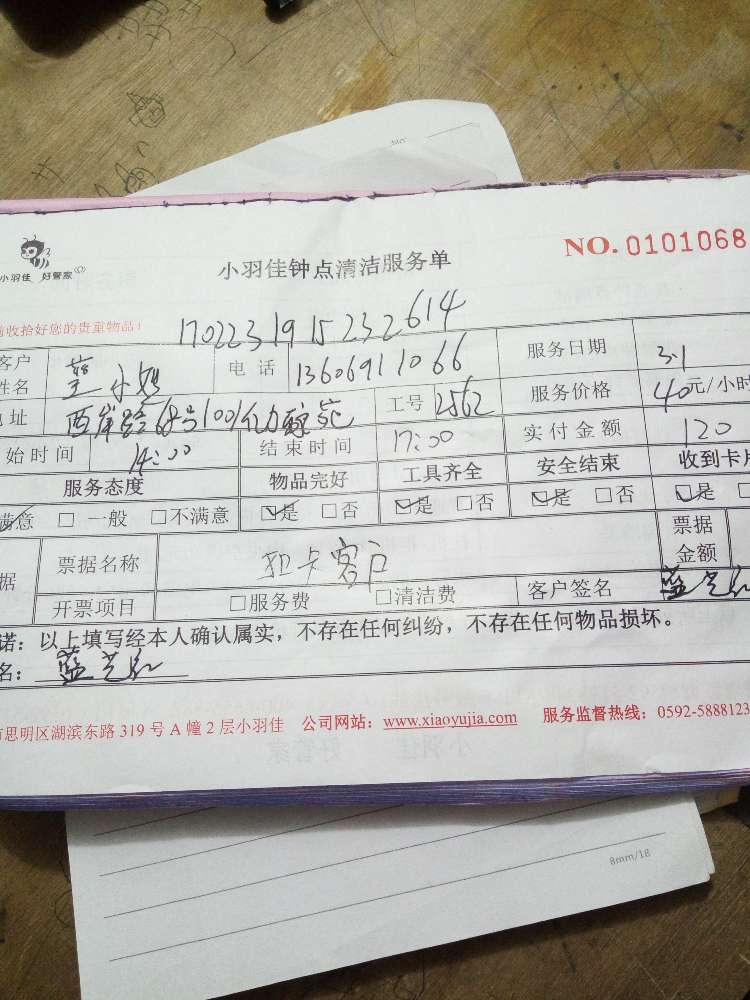 No:
小羽佳 好管家
小羽佳钟点清洁服务单
NO. 0101068
收拾好您的贵重物品!
170223 1915232614
客户姓名 蓝小姐 电话 13606911066 服务日期 3.1
址 西岸路68号1001 工号 2562 服务价格 40元/小时
始时间 14:00 结束时间 17:00 实付金额 120
服务态度 物品完好 工具齐全 安全结束 收到卡片
满意 □一般 □不满意 ☑是 □否 ☑是 □否 ☑是 □否 ☑是 □
据 票据名称 扣卡客户 票据金额
开票项目 □服务费 □清洁费 客户签名 蓝芝红
诺：以上填写经本人确认属实，不存在任何纠纷，不存在任何物品损坏。
名：蓝芝红
市思明区湖滨东路 319 号 A 幢 2 层小羽佳 公司网站：www.xiaoyujia.com 服务监督热线：0592-5888123
8mm/18